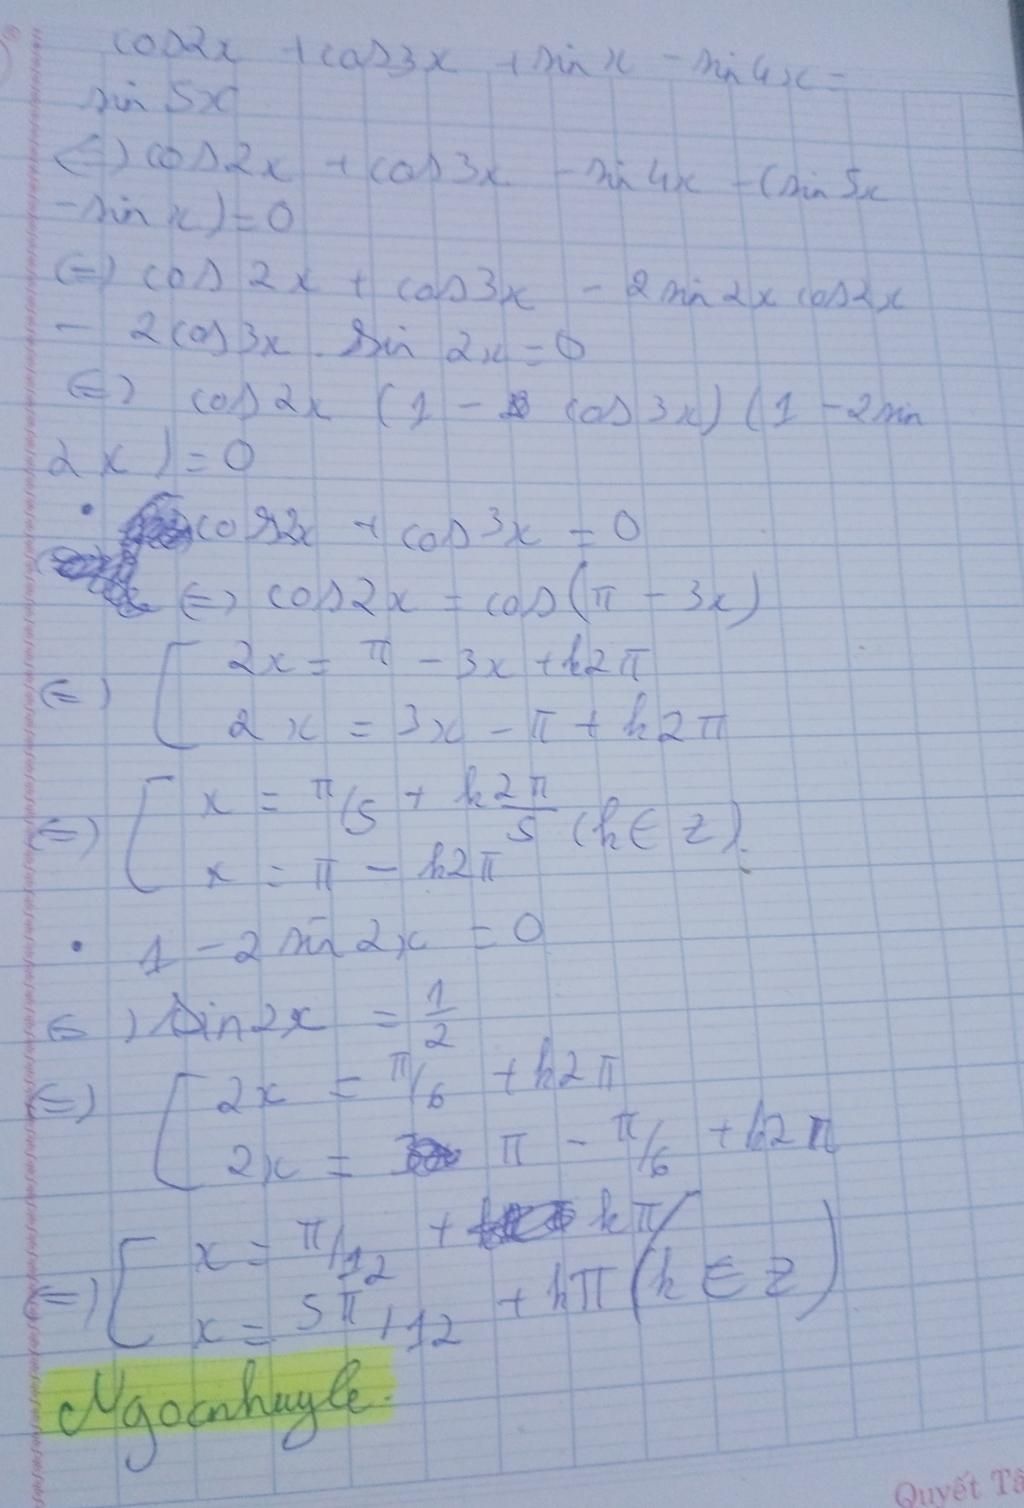 cos2x + cos3x + sinx - sin4x =
sin5x
⇔ cos2x + cos3x - sin4x - (sin5x
- sinx) = 0
⇔ cos2x + cos3x - 2sin2x cos2x
- 2cos3x . sin2x = 0
⇔ cos2x (1 - cos3x) (1 - 2sin
2x) = 0
• cos2x + cos3x = 0
⇔ cos2x = cos(π - 3x)
⇔ [ 2x = π - 3x + k2π
2x = 3x - π + k2π
⇔ [ x = π/5 + k2π/5 (k ∈ Z).
x = π - k2π
• 1 - 2sin2x = 0
⇔ sin2x = 1/2
⇔ [ 2x = π/6 + k2π
2x = π - π/6 + k2π
⇔ [ x = π/12 + kπ
x = 5π/12 + kπ (k ∈ Z)
Ngocnhuyle.
Quyết